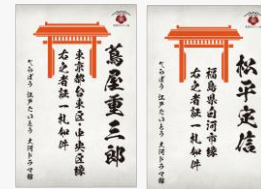 蔦屋重三郎
東京都台東区・中央区様
右之者証一札如件
べらぼう 江戸たいとう 大河ドラマ館
松平定信
福島県白河市様
右之者証一札如件
べらぼう 江戸たいとう 大河ドラマ館